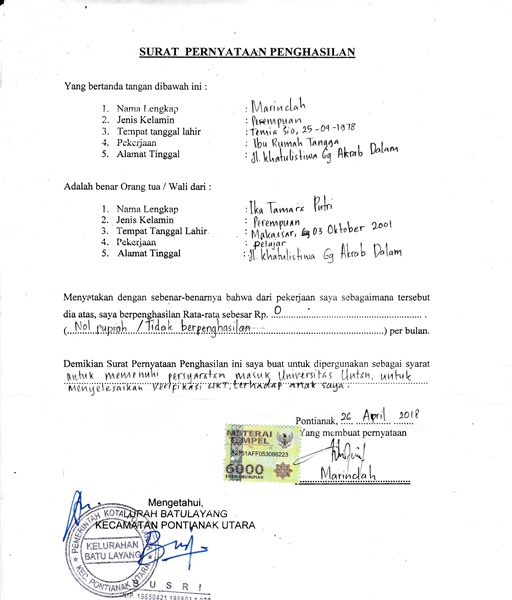 SURAT PERNYATAAN PENGHASILAN
Yang bertanda tangan dibawah ini :
1. Nama Lengkap : Marindah
2. Jenis Kelamin : Perempuan
3. Tempat tanggal lahir : Temia Sio, 25-09-1978
4. Pekerjaan : Ibu Rumah Tangga
5. Alamat Tinggal : Jl. Khatulistiwa Gg Akrab Dalam
Adalah benar Orang tua / Wali dari :
1. Nama Lengkap : Ika Tamara Putri
2. Jenis Kelamin : Perempuan
3. Tempat Tanggal Lahir : Makassar, 03 Oktober 2001
4. Pekerjaan : Pelajar
5. Alamat Tinggal : Jl. Khatulistiwa Gg Akrab Dalam
Menyatakan dengan sebenar-benarnya bahwa dari pekerjaan saya sebagaimana tersebut
dia atas, saya berpenghasilan Rata-rata sebesar Rp. 0
(Nol rupiah / Tidak berpenghasilan) per bulan.
Demikian Surat Pernyataan Penghasilan ini saya buat untuk dipergunakan sebagai syarat
untuk memenuhi persyaratan masuk Universitas Untan, untuk
menyelesaikan verifikasi UKT terhadap anak saya.
Pontianak, 26 April 2018
Yang membuat pernyataan
METERAI
TEMPEL
6000
Marindah
Mengetahui,
LURAH BATULAYANG
KECAMATAN PONTIANAK UTARA
PEMERINTAH KOTA
KELURAHAN
BATU LAYANG
KEC. PONTIANAK UTARA
SUSRI